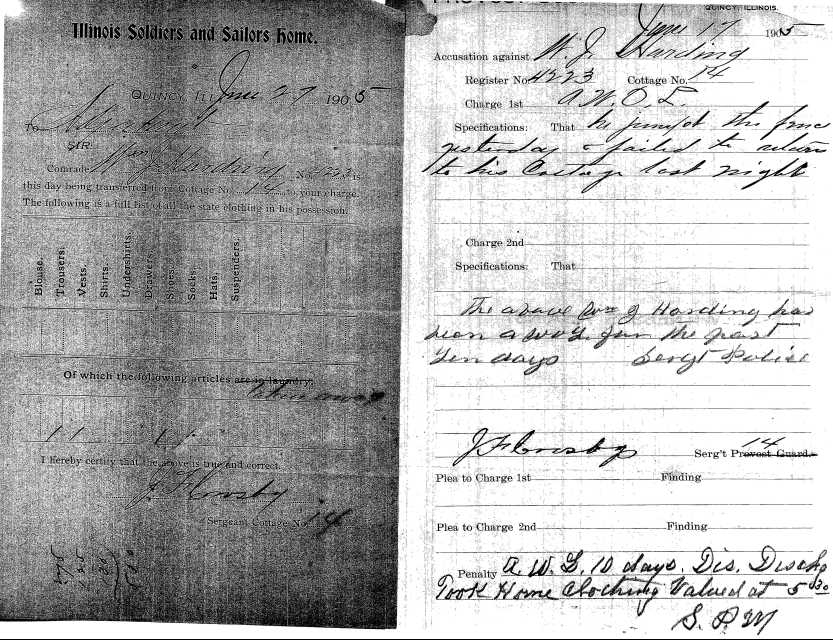 Illinois Soldiers and Sailors Home.
QUINCY, ILL. June 27 1905
To
SIR:
Comrade Wm J Harding No. 4223 is
this day being transferred from Cottage No. 14 to your charge.
The following is a full list of all the state clothing in his possession.
Blouse.
Trousers.
Vests.
Shirts.
Undershirts.
Drawers.
Shoes.
Socks.
Hats.
Suspenders.
Of which the following articles are in laundry:
taken away
11 11
I hereby certify that the above is true and correct.
J F Crosby
Sergeant Cottage No. 14
QUINCY, ILLINOIS.
June 17 1905
Accusation against W. J. Harding
Register No. 4223 Cottage No. 14
Charge 1st A. W. O. L.
Specifications: That he jumped the fence
yesterday & failed to return
to his Cottage last night
Charge 2nd
Specifications: That
The above Wm J Harding has
been A W O L for the past
Ten days Sergt Police
J F Crosby Serg't Provost Guard. 14
Plea to Charge 1st Finding
Plea to Charge 2nd Finding
Penalty A. W. L. 10 days. Dis. Dischg
Took Home Clothing Valued at 5 30
S. P. M